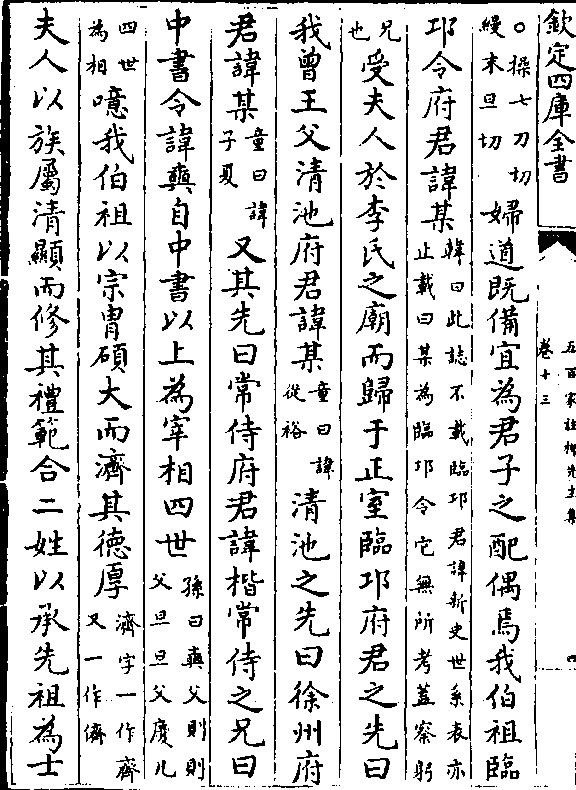 欽定四庫全書
五百家註柳先生集
卷十三
○操七刀切縵末旦切婦道既備宜為君子之配偶焉我伯祖臨
邛令府君諱某韓曰此誌不載臨邛君諱新史世系表亦止載曰某為臨邛令它無所考蓋察躬
兄也受夫人於李氏之廟而歸于正室臨邛府君之先曰
我曾王父清池府君諱某童曰諱從裕清池之先曰徐州府
君諱某童曰諱子夏又其先曰常侍府君諱楷常侍之兄曰
中書令諱奭自中書以上為宰相四世孫曰奭父則則父旦旦父慶凡
四世為相噫我伯祖以宗冑碩大而濟其德厚濟字一作齊又一作儕
夫人以族屬清顯而修其禮範合二姓以承先祖為士